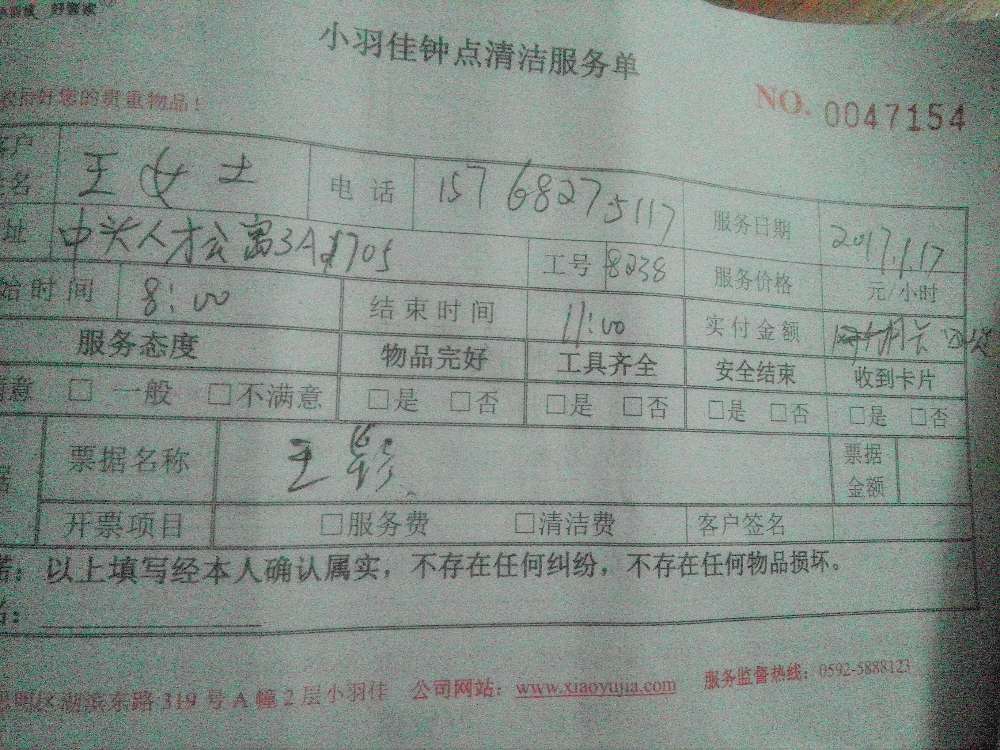 好管家
小羽佳钟点清洁服务单
NO. 0047154
好您的贵重物品！
王女士 电话 15768275117 服务日期 2017.1.17
址 中头人才公寓3A1705 工号 8238 服务价格 元/小时
始时间 8:00 结束时间 11:00 实付金额
服务态度 物品完好 工具齐全 安全结束 收到卡片
意 □ 一般 □不满意 □是 □否 □是 □否 □是 □否 □是 □否
票据名称 王 票据金额
开票项目 □服务费 □清洁费 客户签名
：以上填写经本人确认属实，不存在任何纠纷，不存在任何物品损坏。
明区湖滨东路319号A幢2层小羽佳 公司网站：www.xiaoyujia.com 服务监督热线：0592-5888123